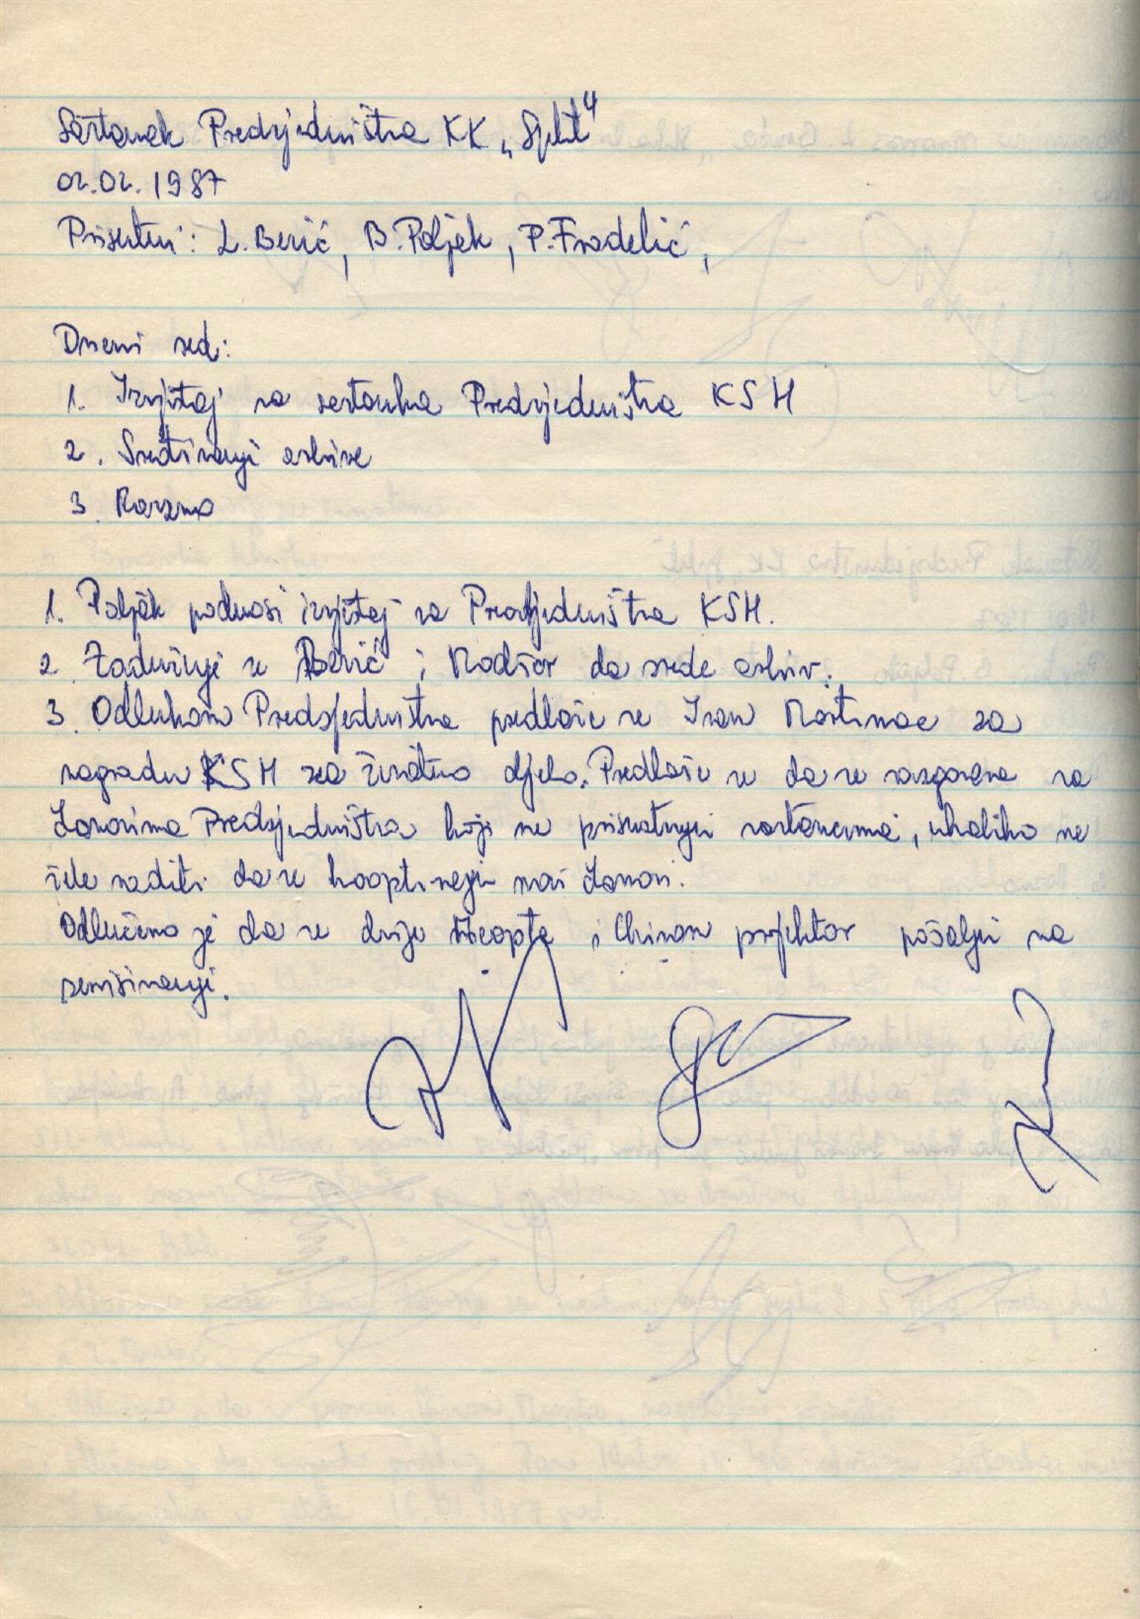 Sastanak Predsjedništva KK „Split"
02.02.1987
Prisutni: L. Berić, B. Poljak, P. Fradelić,
Dnevni red:
1. Izvještaj sa sastanka Predsjedništva KSH
2. Sređivanje arhive
3. Razno
1. Poljak podnosi izvještaj sa Predsjedništva KSH.
2. Zadužuje se Berić i da srede arhiv.
3. Odlukom Predsjedništva predlaže se Ivan Martinac za
nagradu KSH za životno djelo. Predlaže se da se razgovara sa
članovima Predsjedništva koji ne prisustvuju sastancima, ukoliko ne
žele raditi da se kooptiraju novi članovi.
Odlučeno je da se dvije i projektor pošalju na
servisiranje.